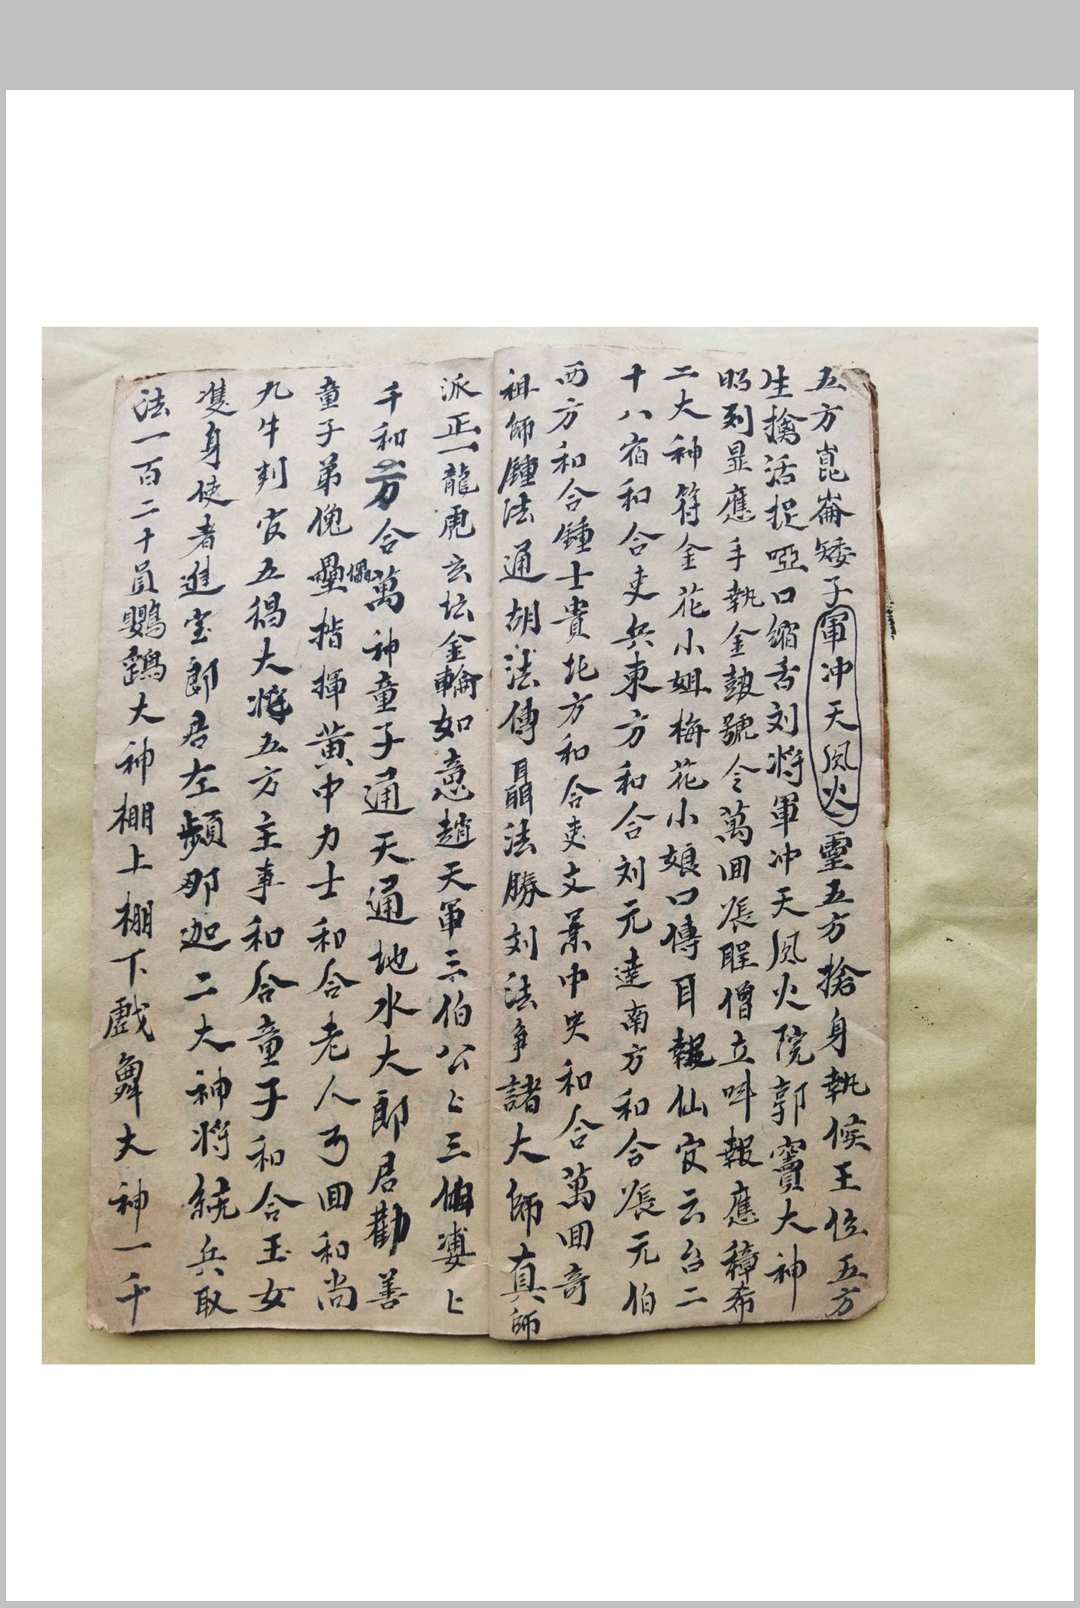 五方崑崙矮子軍冲天風火靈五方搶身執候王位五方
生擒活捉啞口縮舌刘將軍冲天風火院郭竇大神
昭刻显應手執金鼓號令萬回張聖僧立呌報應
二大神符金花小姐梅花小娘口傳耳報仙官云台二
十八宿和合吏兵東方和合刘元達南方和合張元伯
西方和合鍾士貴北方和合吏文業中央和合萬回哥
祖師鍾法通胡法傳聶法勝刘法爭諸大師真師
派正一龍虎玄坛金輪如意趙天軍三伯公〻三伯婆〻
千和万合萬神童子通天通地水大郎君勸善
童子弟傀壘儡指揮黄巾力士和合老人丂回和尚
九牛判官五猖大将五方主事和合童子和合玉女
隻身使者進宝郎君左頻那迦二大神将統兵取
法一百二十員鸚鵡大神棚上棚下戲舞大神一千